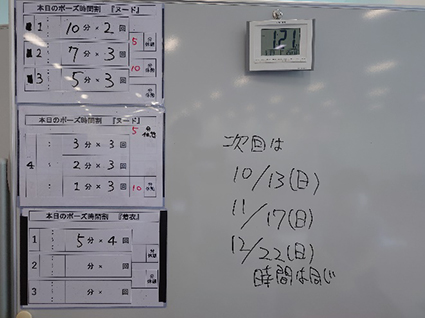 本日のポーズ時間割 『ヌード』
1 : 10分 × 2回
5 分休憩
2 : 7分 × 3回
10 分休憩
3 : 5分 × 3回
本日のポーズ時間割 『ヌード』
5 分休憩
3分 × 3回
4 : 2分 × 3回
1分 × 3回 10
本日のポーズ時間割 『着衣』
1 : 5分 × 4回
分休憩
2 : 分 × 回
分休憩
3 : 分 × 回
121
次回は
10/13(日)
11/17(日)
12/22(日)
時間は同じ